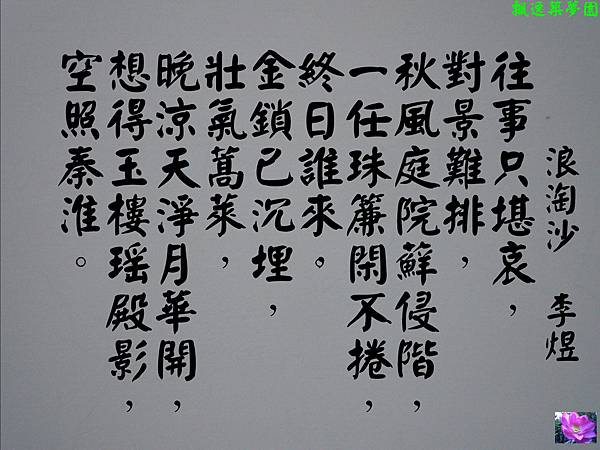 飄逸築夢園
浪淘沙 李煜
往事只堪哀，
對景難排，
秋風庭院蘚侵階，
一任珠簾閑不捲，
終日誰來。
金鎖已沉埋，
壯氣蒿萊，
晚涼天淨月華開，
想得玉樓瑤殿影，
空照秦淮。